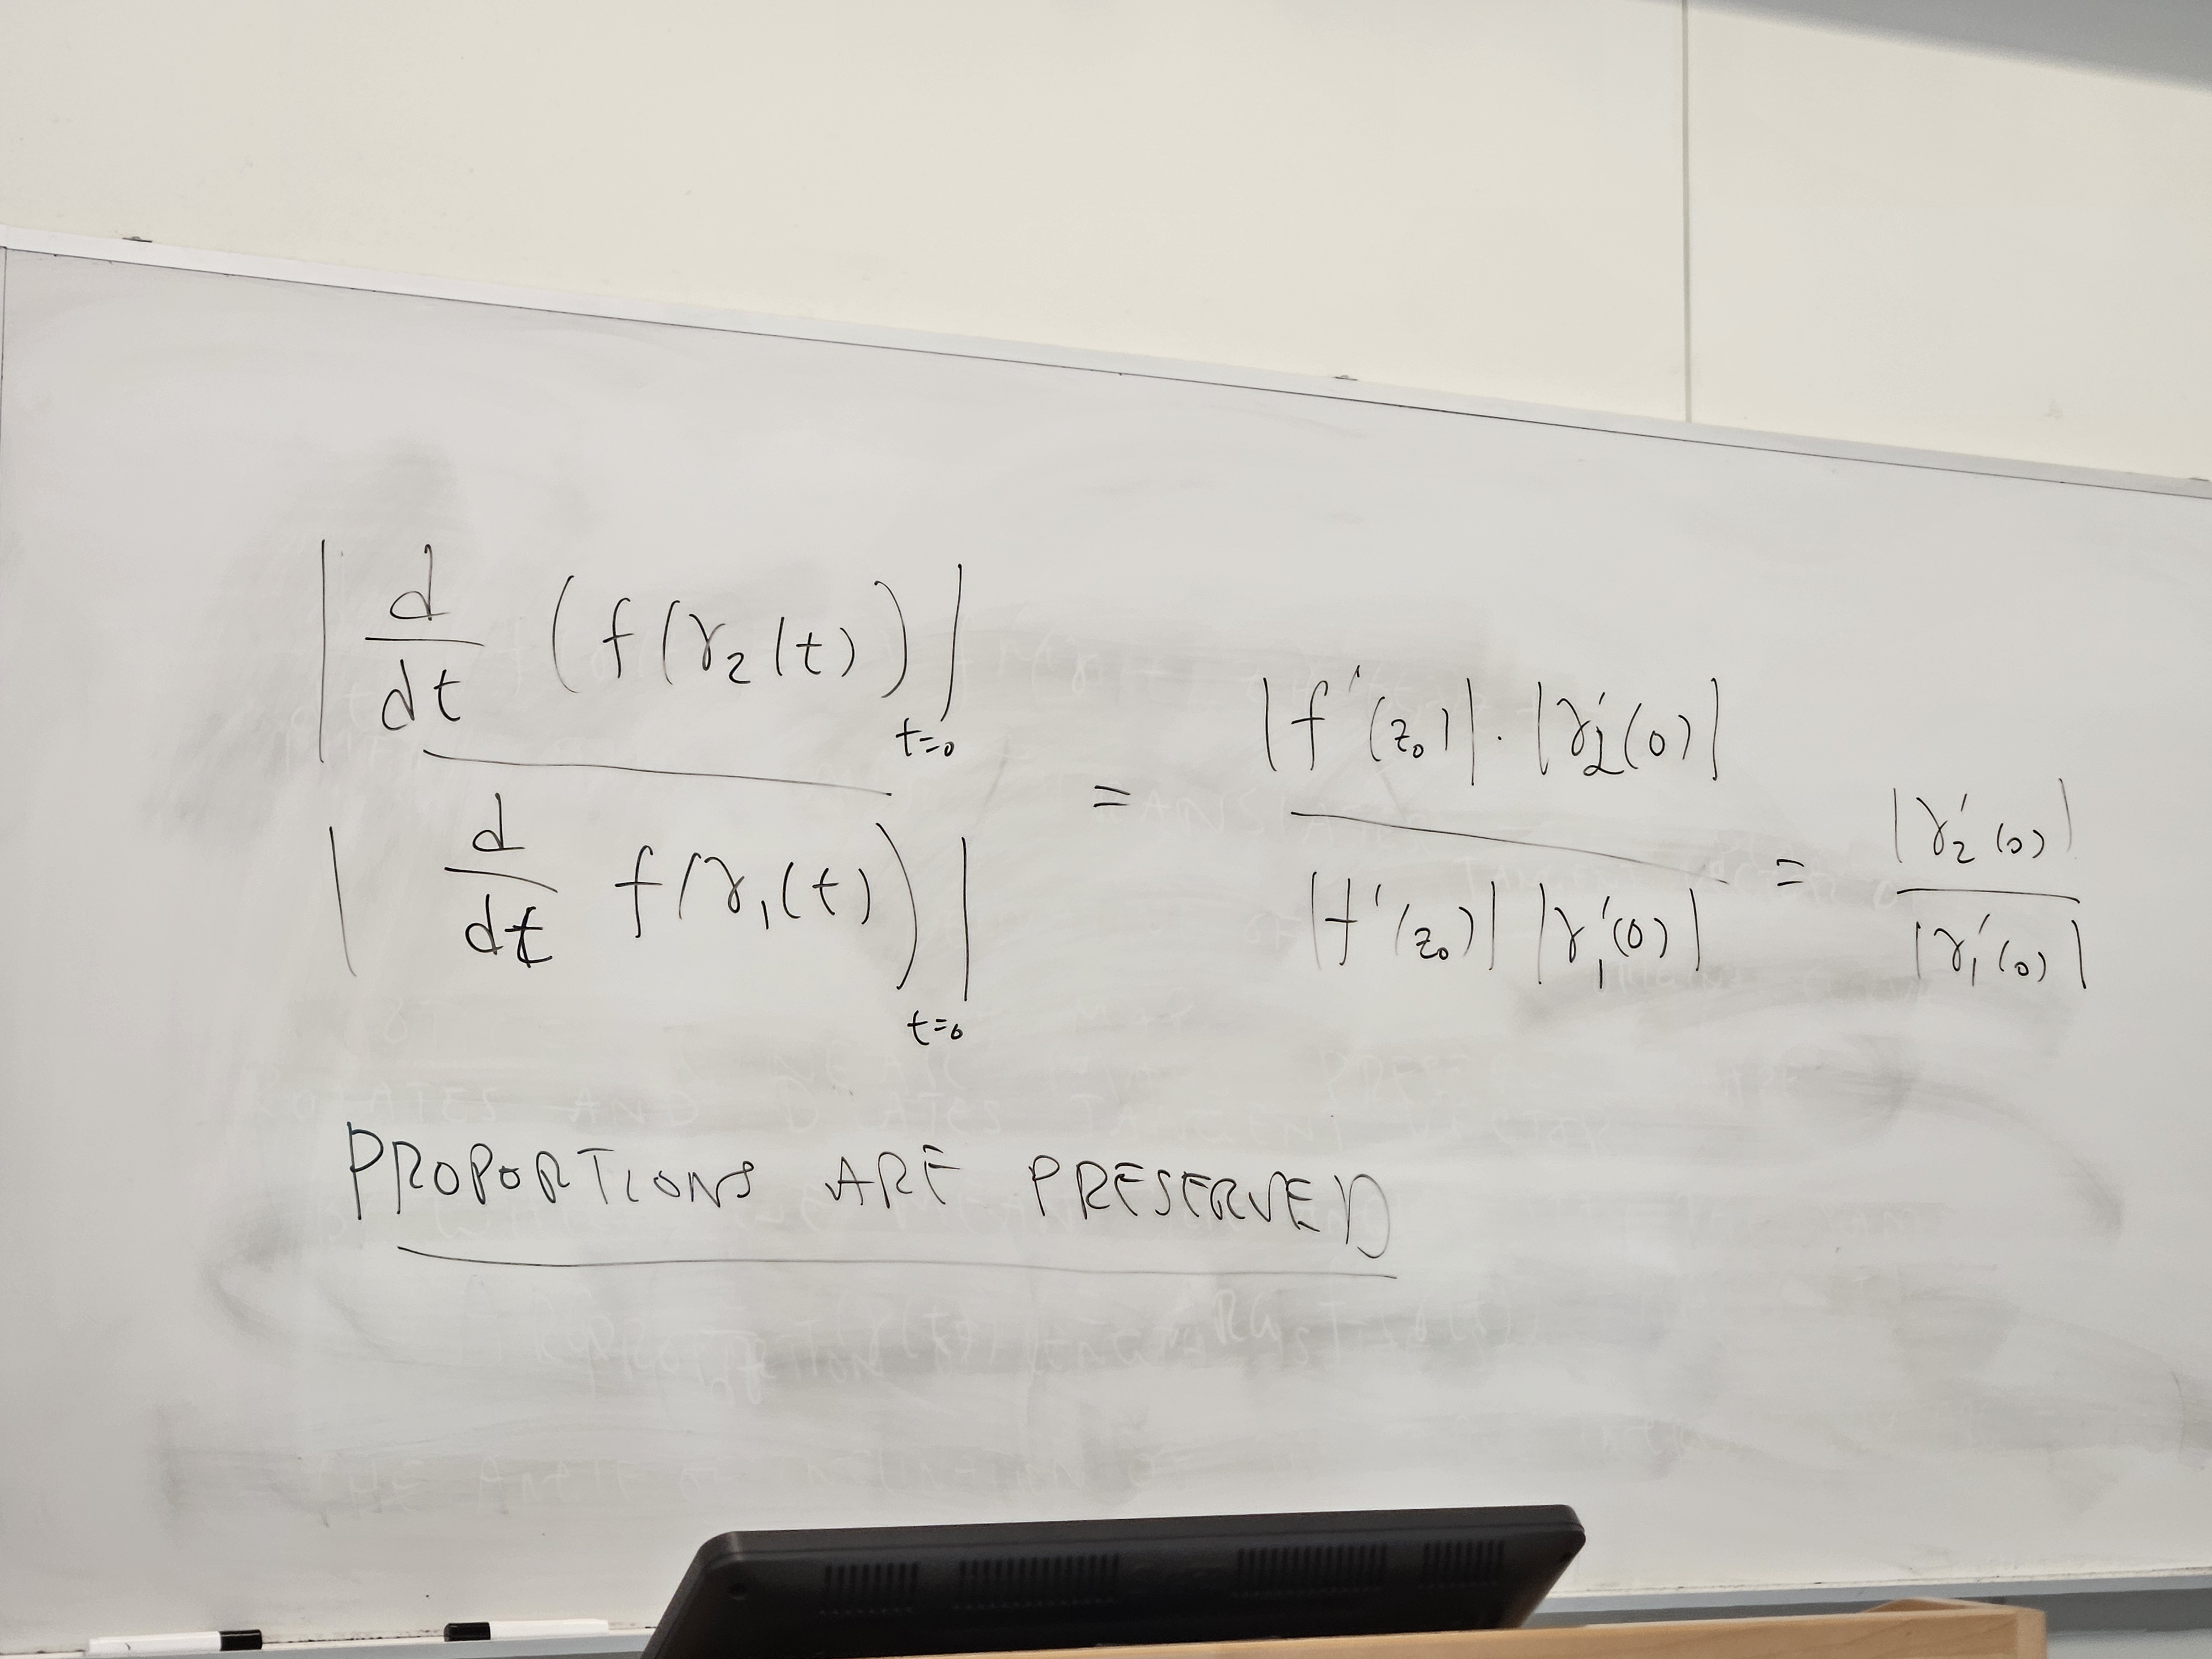 | d/dt (f(γ₂(t))|ₜ₌₀ / | d/dt f(γ₁(t))|ₜ₌₀ = |f'(z₀)|·|γ₂'(0)| / |f'(z₀)| |γ₁'(0)| = |γ₂'(0)| / |γ₁'(0)|
PROPORTIONS ARE PRESERVED